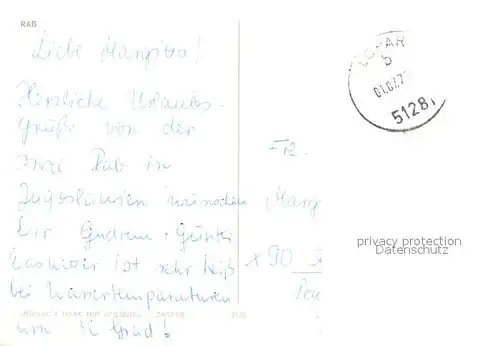 RAB
Liebe Margitta!
Herzliche Urlaubs-
grüße von der
Insel Rab in
Jugoslawien wünschen
Dir Gudrun + Günter
hier ist sehr heiß
bei Wassertemperaturen
von Grad!
Frl.
Marg
x 90
LOPAR
b
51281
privacy protection
Datenschutz
ZAGREB